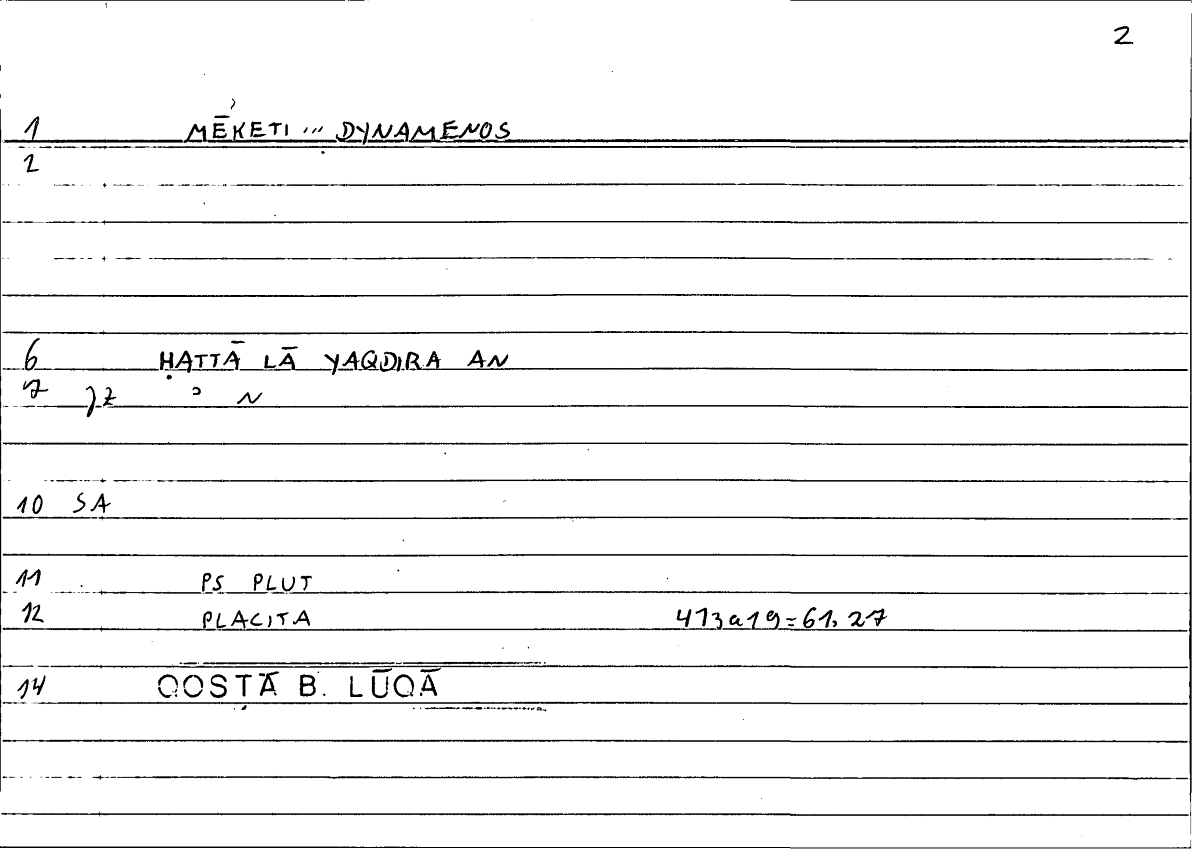 2
1 MĒKETI ... DYNAMENOS
2
6 ḤATTĀ LĀ YAQDIRA AN
7 ɔ N
10 SA
11 PS PLUT
12 PLACITA 413a19=61,27
14 QOSṬĀ B. LŪQĀ